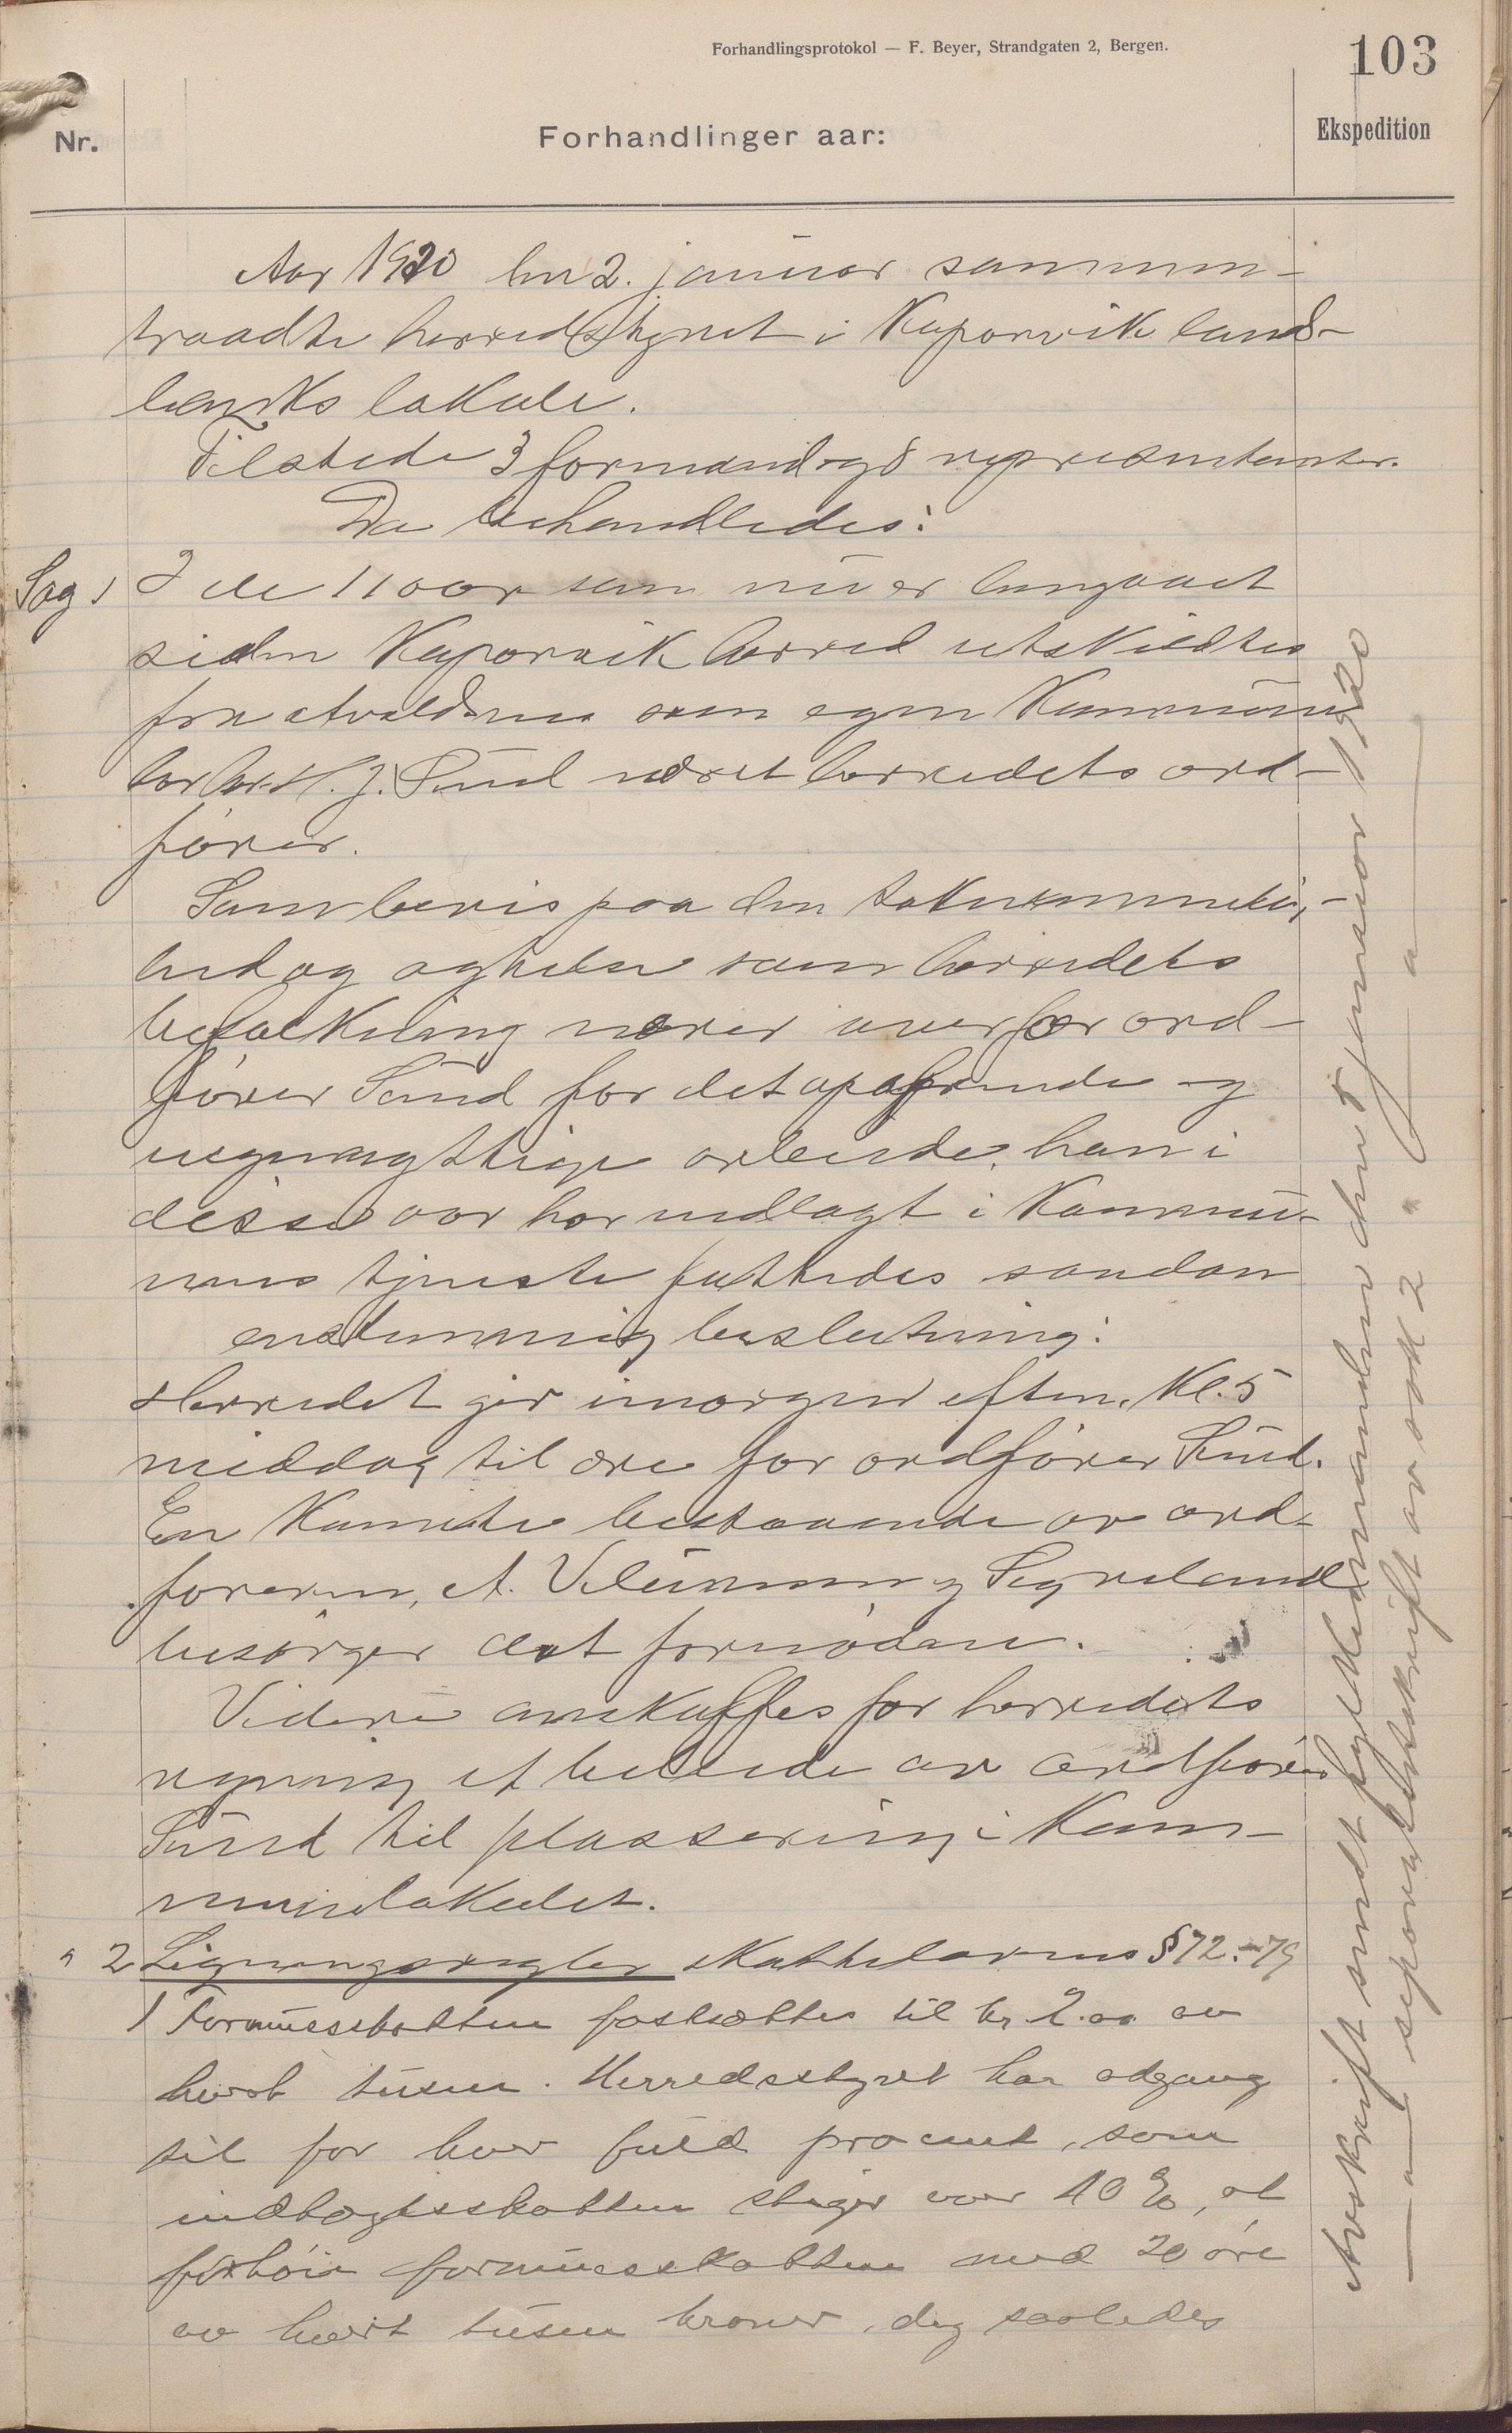 Forhandlingsprotokol — F. Beyer, Strandgaten 2, Bergen.
103
Nr.
Forhandlinger aar:
Ekspedition
Aar 1920 den 2. januar sammen-
traadte herredstyret i Kopervik land-
banks lokale.
Tilstede 3 formænd og 8 repræsentanter.
Da behandledes:
Sag 1
I de 11 aar som nu er hengaaet
siden Kopervik herred utskildtes
fra Avaldsnes som egen Kommune
har hr. H. J. Sund været herredets ord-
fører.
Som bevis paa den taknemmelig-
hed og agtelse som herredets
befolkning nærer overfor ord-
fører Sund for det opofrende og
uegennyttige arbeide, han i
disse aar har nedlagt i Kommu-
nens tjeneste fattedes saadan
enstemmig beslutning:
Herredet gir imorgen efterm. Kl. 5
middag til ære for ordfører Sund.
En Komite bestaaende av ord-
føreren, A. Velure og Sygneland
besørger det fornødne.
Videre anskaffes for herredets
regning et billede av ordfører
Sund til plassering i Kom-
munelokalet.
" 2 Ligningsregler skattelovens § 72 - 79
1 Formuesskatten fastsættes til kr. 2.00 av
hvert tusen. Herredsstyret har adgang
til for hver fuld procent, som
indtægtsskatten stiger over 10 %, at
forhøie formuesskatten med 20 øre
av hvert tusen kroner, dog saaledes
Avskrift sendt fylkesmanden den 5 januar 1920
— " — separatutskrift av sak 2 " — " —